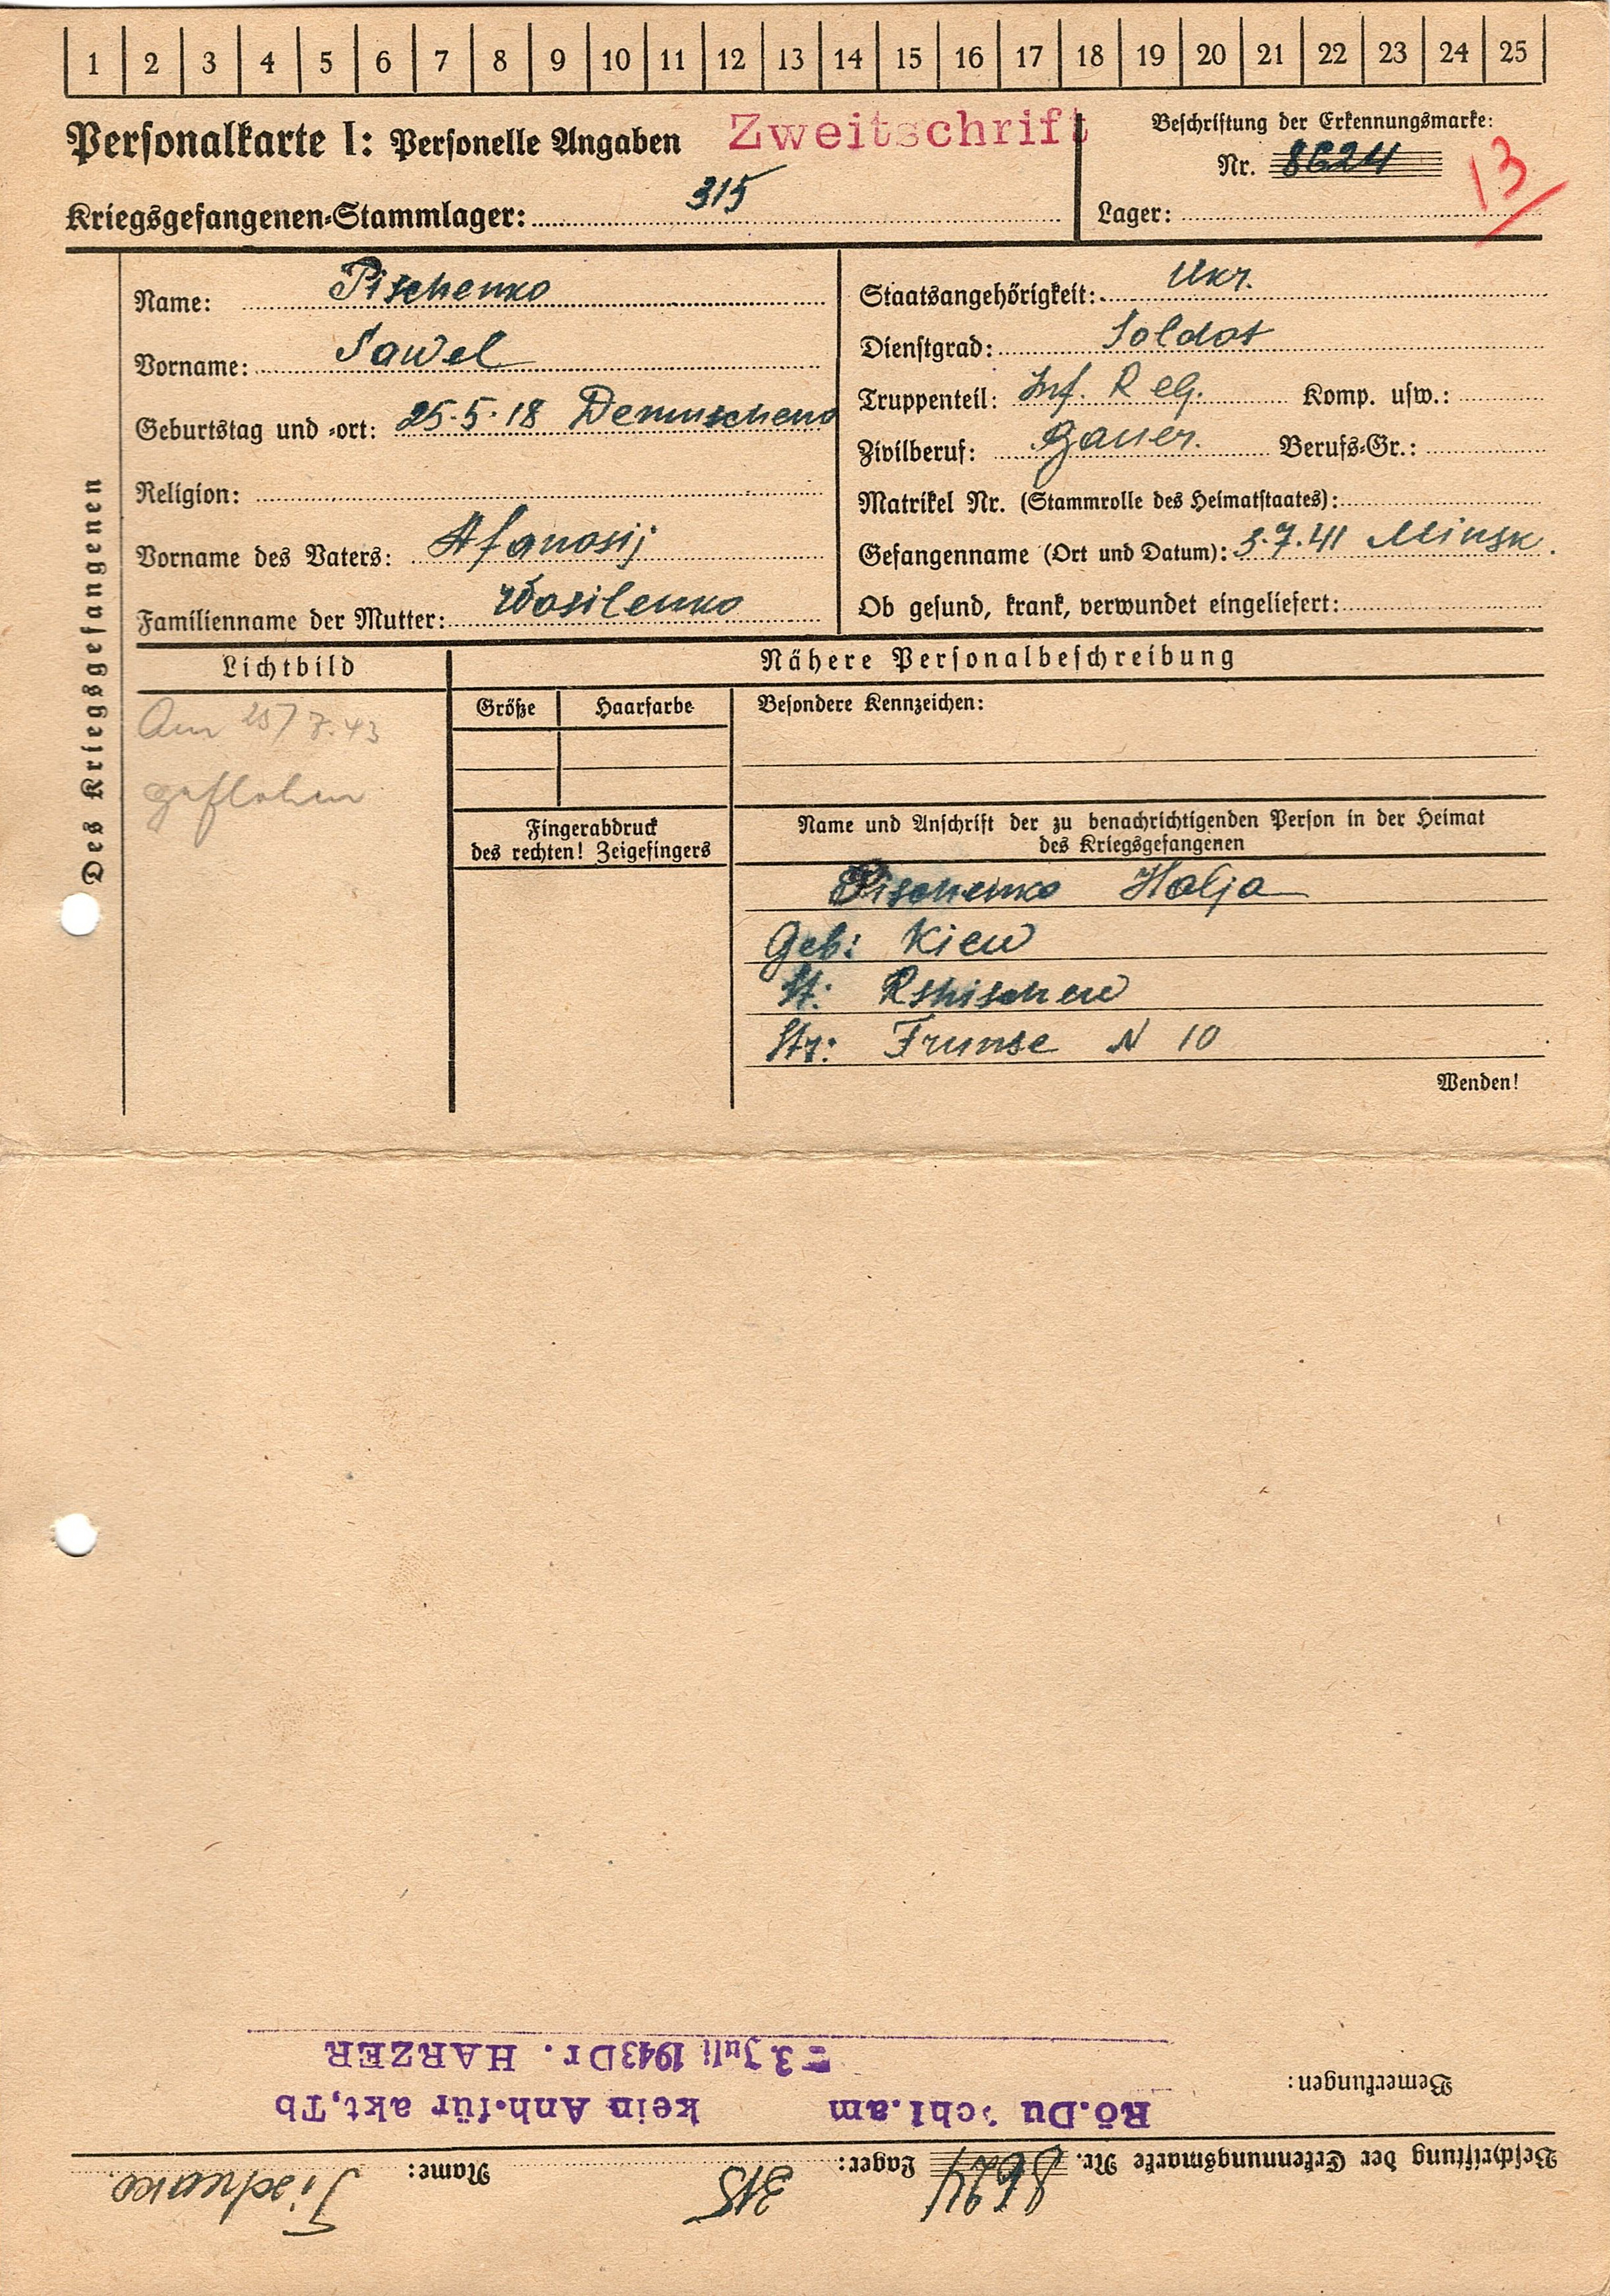 1 2 3 4 5 6 7 8 9 10 11 12 13 14 15 16 17 18 19 20 21 22 23 24 25
Personalkarte I: Personelle Angaben Zweitschrift
Beschriftung der Erkennungsmarke:
Nr. 8624
13
Kriegsgefangenen-Stammlager: 315
Lager:
Des Kriegsgefangenen
Name: Pischenko
Vorname: Sawel
Geburtstag und -ort: 25.5.18
Religion:
Vorname des Vaters: Afanasij
Familienname der Mutter: Wasilenko
Staatsangehörigkeit: Ukr.
Dienstgrad: Soldat
Truppenteil: Inf. Reg. Komp. usw.:
Zivilberuf: Bauer. Berufs-Gr.:
Matrikel Nr. (Stammrolle des Heimatstaates):
Gefangenname (Ort und Datum): 3.7.41 Minsk.
Ob gesund, krank, verwundet eingeliefert:
Lichtbild
Am 25/7.43
geflohen
Nähere Personalbeschreibung
Größe Haarfarbe Besondere Kennzeichen:
Fingerabdruck
des rechten! Zeigefingers
Name und Anschrift der zu benachrichtigenden Person in der Heimat
des Kriegsgefangenen
Pischenko Halja
Geb: Kiew
St: Rshischew
Str: Frunse N 10
Wenden!
Beschriftung der Erkennungsmarke Nr. 8624 Lager: 315 Name: Pischenko.
Bemerkungen:
Rö.Du chl.am kein Anh.für akt,Tb
-3. Juli 1943 Dr. HARZER